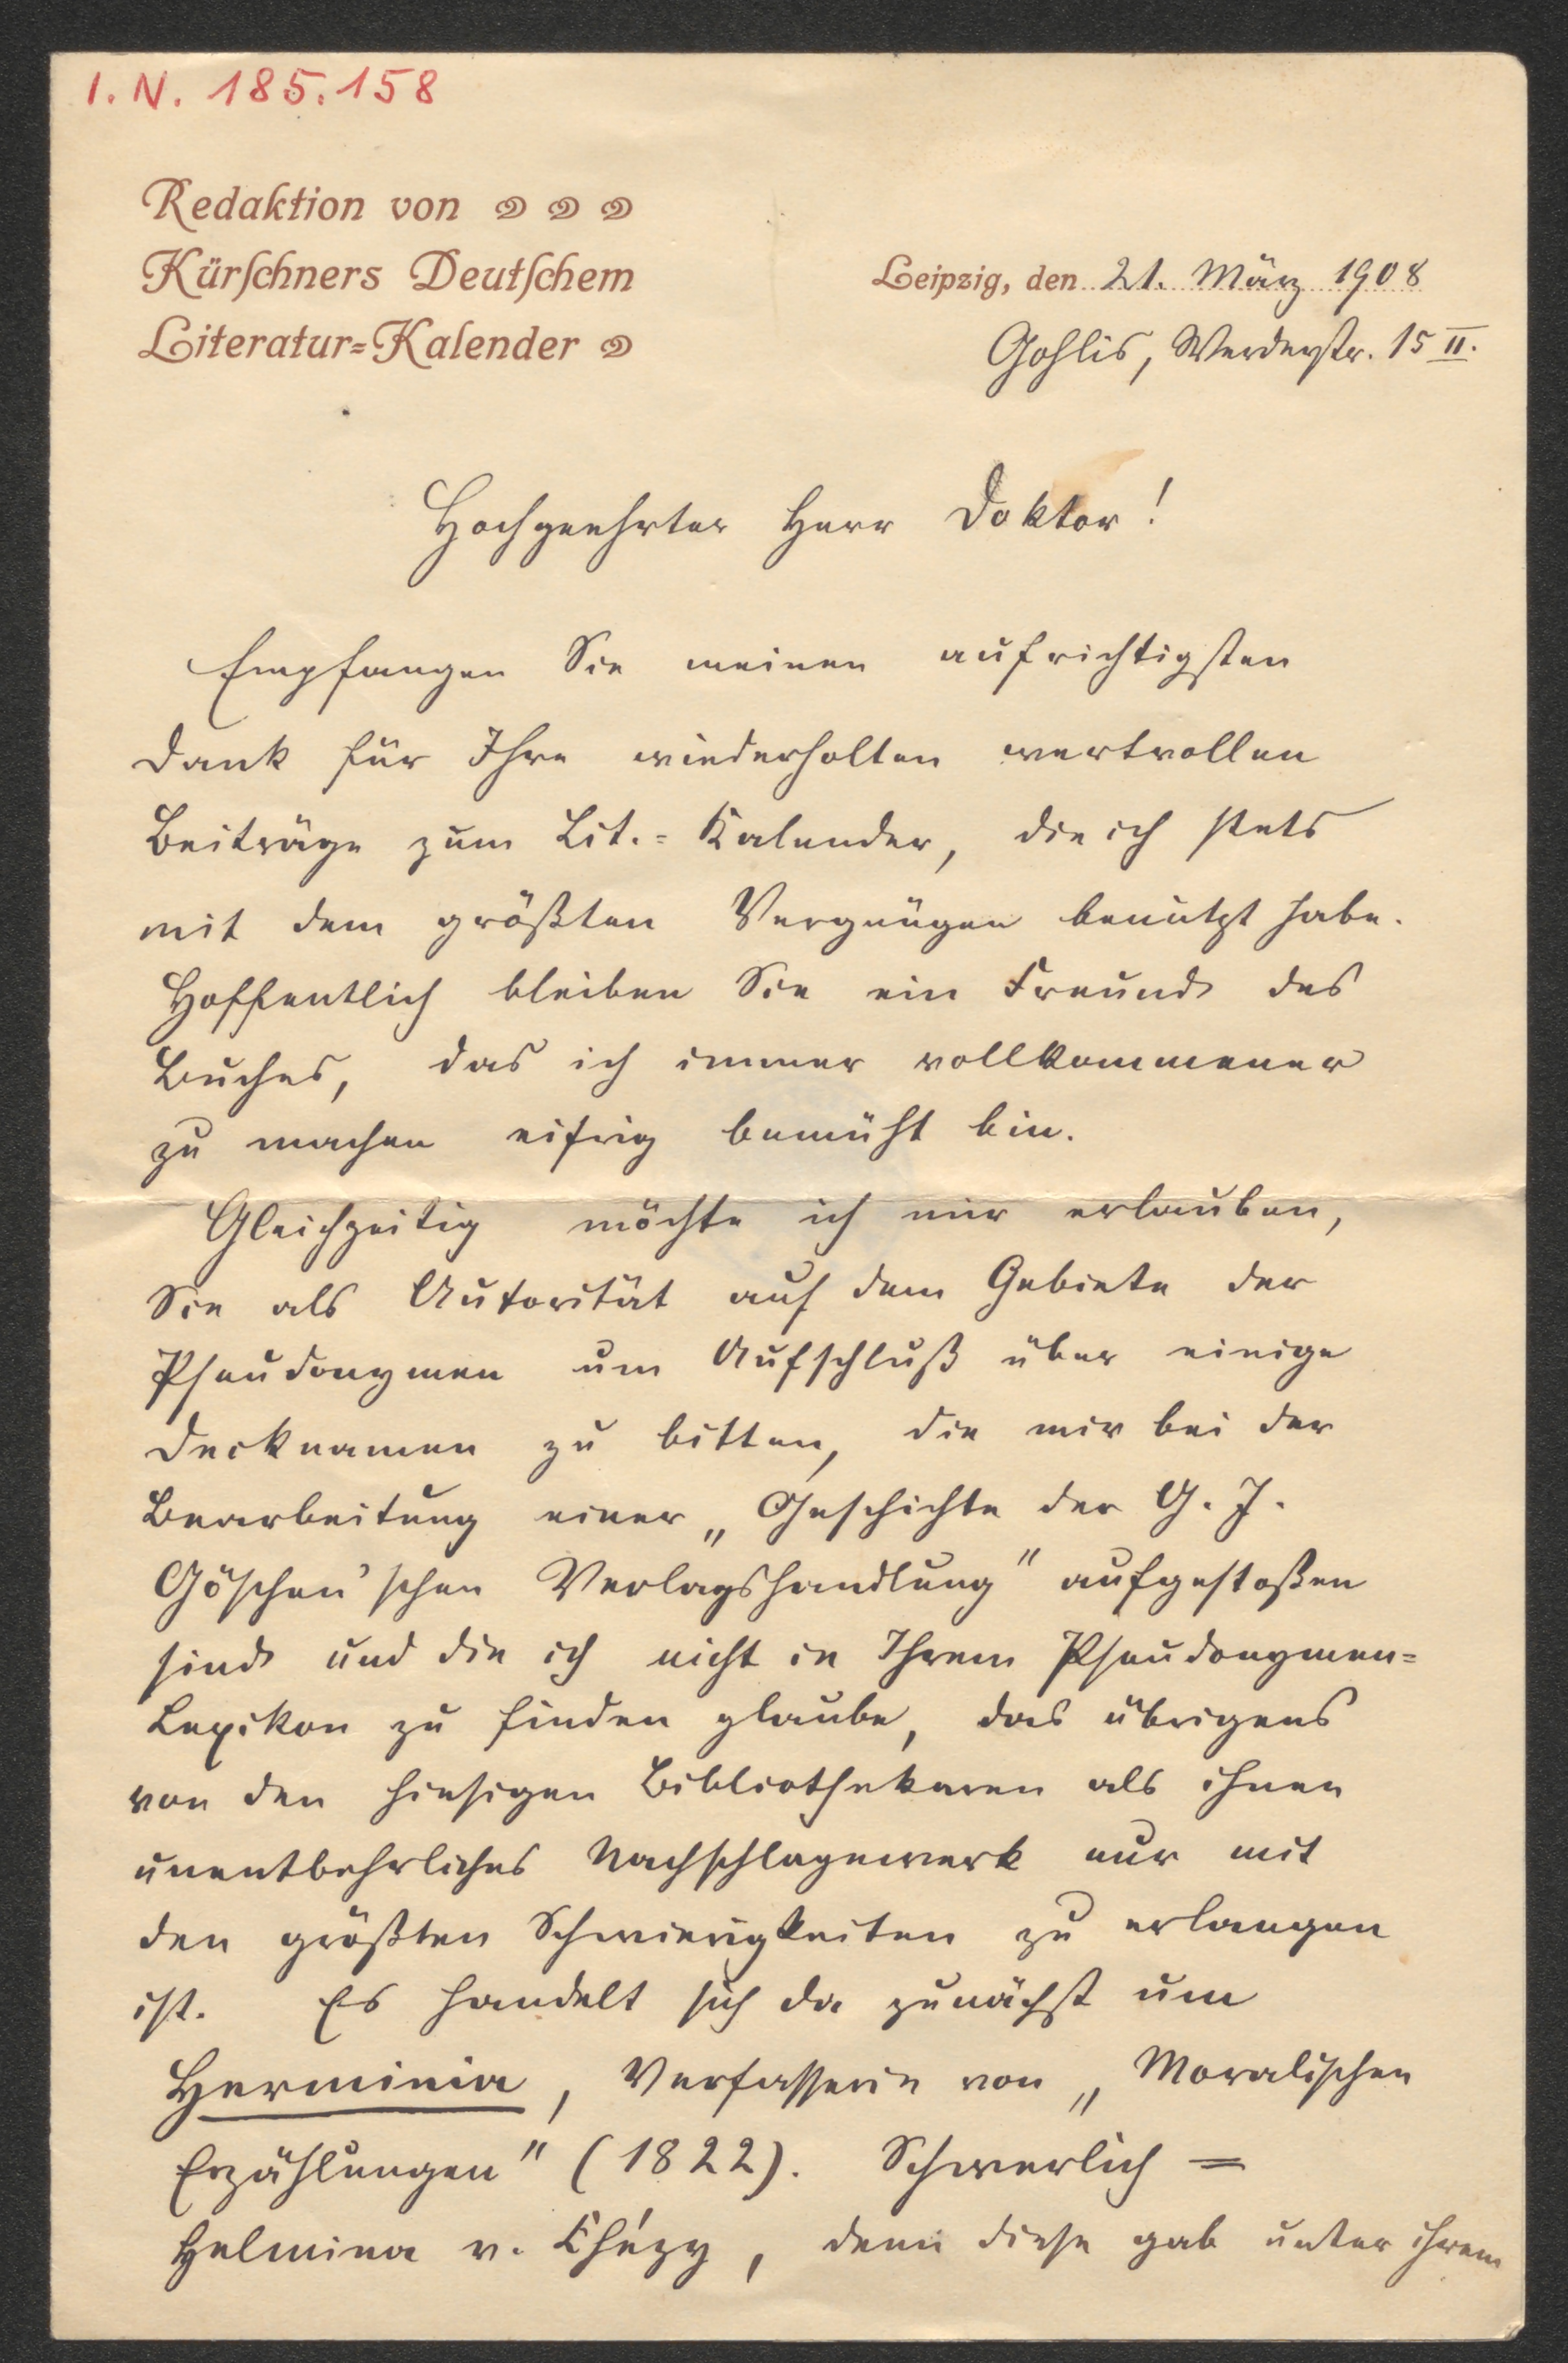 I. N. 185.158
Redaktion von
Kürschners Deutschem
Literatur=Kalender
Leipzig, den 21. März 1908
Gohlis, Werderstr. 15 II.
Hochgeehrter Herr Doktor!
Empfangen Sie meinen aufrichtigsten
Dank für Ihre wiederholten wertvollen
Beiträge zum Lit.=Kalender, die ich stets
mit dem größten Vergnügen benützt habe.
Hoffentlich bleiben Sie ein Freund des
Buches, das ich immer vollkommener
zu machen eifrig bemüht bin.
Gleichzeitig möchte ich mir erlauben,
Sie als Autorität auf dem Gebiete der
Pseudonymen um Aufschluß über einige
Decknamen zu bitten, die mir bei der
Bearbeitung einer „Geschichte der G. J.
Göschen'schen Verlagshandlung" aufgestoßen
sind und die ich nicht in Ihrem Pseudonymen=
Lexikon zu finden glaube, das übrigens
von den hiesigen Bibliothekaren als ihnen
unentbehrliches Nachschlagewerk nur mit
den größten Schwierigkeiten zu erlangen
ist. Es handelt sich da zunächst um
Herminia, Verfasserin von „Moralischen
Erzählungen" (1822). Schwerlich =
Helmina v. Chézy, denn diese gab unter ihrem